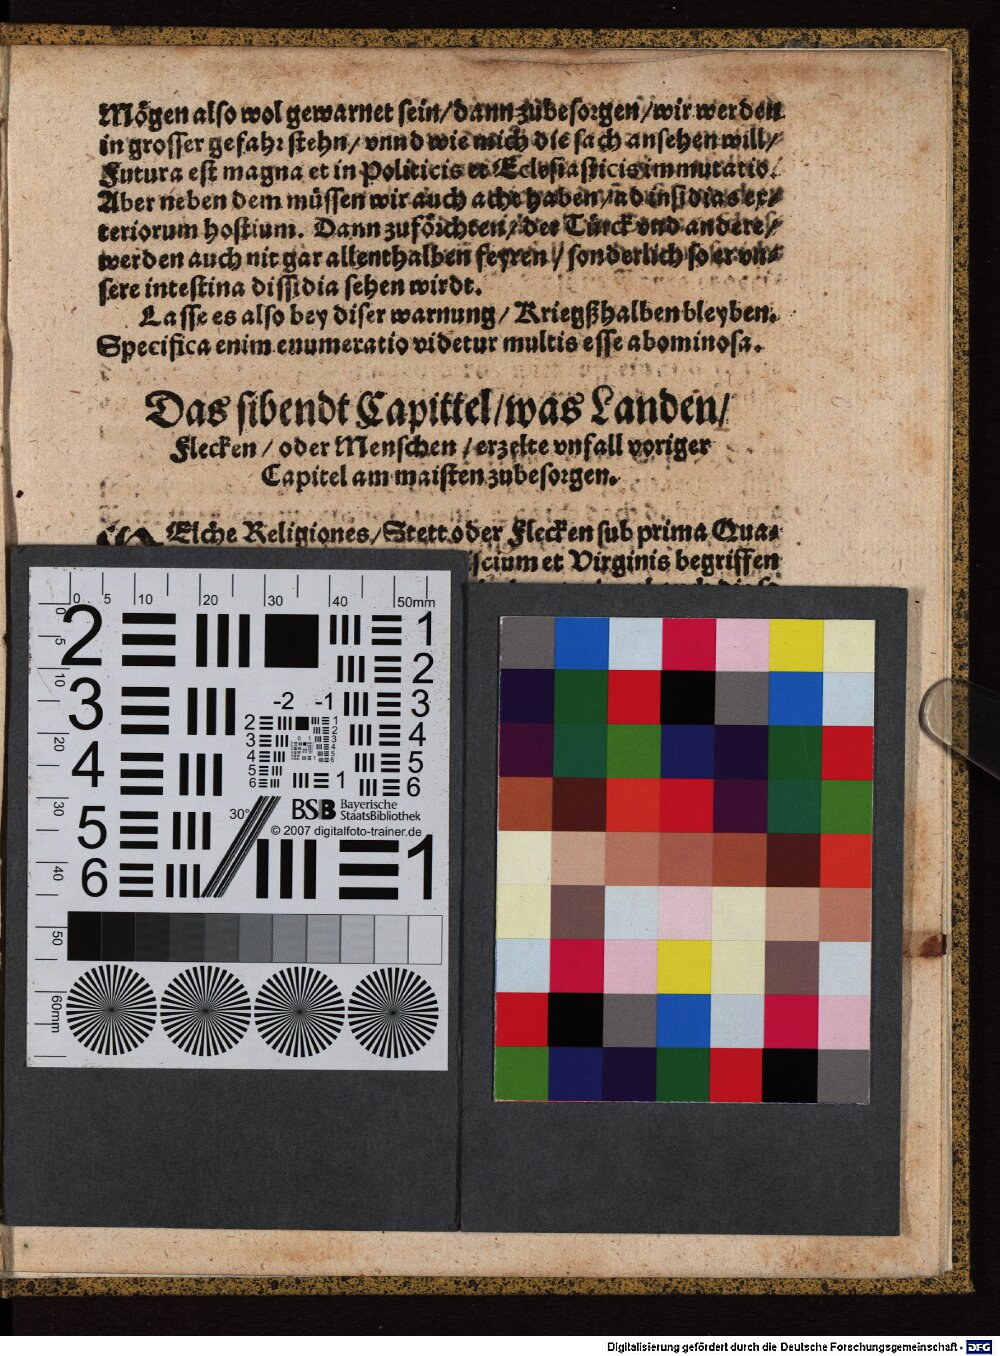 Mögen also wol gewarnet sein/dann zůbesorgen/wir werden
in grosser gefahr stehn/ vnnd wie mich die sach ansehen will/
Futura est magna et in Politicis et Eclesiasticis immutatio.
Aber neben dem müssen wir auch acht haben/ad insidias ex⸗
teriorum hostium. Dann zuföichten/der Türck vnd andere/
werden auch nit gar allenthalben feyren/ sonderlich so er vn⸗
sere intestina dissidia sehen wirdt.
Lasse es also bey diser warnung/ Kriegßhalben bleyben.
Specifica enim enumeratio videtur multis esse abominosa.
Das sibendt Capittel/was Landen/
Flecken/ oder Menschen/erzelte vnfall voriger
Capitel am maisten zubesorgen.
Elche Religiones/Stett oder Flecken sub prima Qua⸗
scium et Virginis begriffen
0 5 10 20 30 40 50mm
0 5 10 20 30 40 50 60mm
2 3 4 5 6
1 2 3 4 5 6
-2 -1
2 3 4 5 6
1 2 3 4 5 6
1
30°
BSB Bayerische
StaatsBibliothek
© 2007 digitalfoto-trainer.de
1
Digitalisierung gefördert durch die Deutsche Forschungsgemeinschaft - DFG